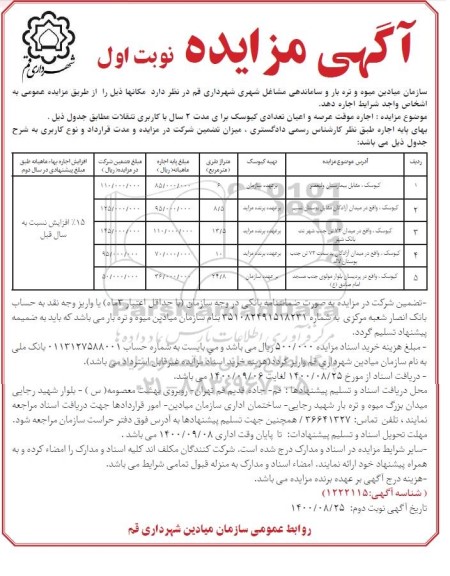 آگهی مزایده نوبت اول
شهرداری قم
سازمان میادین میوه و تره بار و ساماندهی مشاغل شهری شهرداری قم در نظر دارد مکانها ذیل را از طریق مزایده عمومی به
اشخاص واجد شرایط اجاره دهد.
موضوع مزایده : اجاره موقت عرصه و اعیان تعدادی کیوسک برای مدت ۲ سال با کاربری تنقلات مطابق جدول ذیل .
بهای پایه اجاره طبق نظر کارشناس رسمی دادگستری ، میزان تضمین شرکت در مزایده و مدت قرارداد و نوع کاربری به شرح
جدول ذیل می باشد:
ردیف آدرس موضوع مزایده تهیه کیوسک متراژ تقریبی (مترمربع) مبلغ پایه اجاره ماهیانه( ریال ) مبلغ تضمین شرکت در مزایده( ریال ) افزایش اجاره بهاء ماهیانه طبق مبلغ پیشنهادی در سال دوم
۱ کیوسک ، مقابل بیمارستان برعهده سازمان ۵ ۸۵/۰۰۰/۰۰۰ ۱۱۰/۰۰۰/۰۰۰
۲ کیوسک ، واقع در میدان آزادگان برعهده برنده مزایده ۸/۵ ۹۵/۰۰۰/۰۰۰ ۱۲۵/۰۰۰/۰۰۰
۳ کیوسک ، واقع در میدان ۷۲ تن جنب شهر بانک شهر برعهده برنده مزایده ۱۳/۵ ۱۱۰/۰۰۰/۰۰۰ ۱۴۵/۰۰۰/۰۰۰
۴ کیوسک ، واقع در میدان ۷۲ تن جنب بوستان لاله برعهده برنده مزایده ۱۰ ۷۰/۰۰۰/۰۰۰ ۹۵/۰۰۰/۰۰۰
۵ کیوسک ، واقع در پردیسان بلوار مولوی جنب مسجد امام صادق (ع) برعهده سازمان ۲۴/۸ ۳۶/۰۰۰/۰۰۰ ۵۰/۰۰۰/۰۰۰
۱۵٪ افزایش نسبت به سال قبل
-تضمین شرکت در مزایده به صورت ضمانتنامه بانکی در وجه سازمان (با حداقل اعتبار ۳ماه) یا واریز وجه نقد به حساب
بانک انصار شعبه مرکزی به شماره ۳۵۱۰۸۲۴۹۱۵۱۸۲۳۱ بنام سازمان میادین میوه و تره بار می باشد که باید به ضمیمه
پیشنهاد تسلیم گردد.
- مبلغ هزینه خرید اسناد مزایده ۵۰۰/۰۰۰ ریال می باشد و می بایست به شماره حساب ۰۱۱۳۱۲۷۵۸۸۰۰۱ بانک ملی
به نام سازمان میادین شهرداری قم واریز گردد(هزینه خرید اسناد مزایده غیرقابل استرداد می باشد).
- دریافت اسناد از مورخ ۱۴۰۰/۰۸/۲۵ لغایت ۱۴۰۰/۰۹/۰۶ می باشد.
محل دریافت اسناد و تسلیم پیشنهادات : قم- جاده قدیم قم تهران- روبروی بهشت معصومه( س ) - بلوار شهید رجایی
میدان بزرگ میوه و تره بار شهید رجایی- ساختمان اداری سازمان میادین- امور قراردادها جهت دریافت اسناد مراجعه
نمایند ، تلفن تماس: ۳۶۶۴۱۳۲۷ / همچنین جهت تسلیم پیشنهادها به آدرس فوق دفتر حراست سازمان مراجعه شود.
مهلت تحویل اسناد و تسلیم پیشنهادات: تا پایان وقت اداری ۱۴۰۰/۰۹/۰۸ می باشد .
-سایر شرایط مزایده در اسناد و مدارک درج شده است. شرکت کنندگان مکلف اند کلیه اسناد و مدارک را امضاء کرده و به
همراه پیشنهاد خود ارائه نمایند. امضاء اسناد و مدارک به منزله قبول تمامی شرایط می باشد.
-هزینه درج آگهی بر عهده برنده مزایده می باشد.
( شناسه آگهی:۱۲۲۲۱۱۵)
تاریخ آگهی نوبت دوم: ۱۴۰۰/۰۸/۲۵
روابط عمومی سازمان میادین شهرداری قم